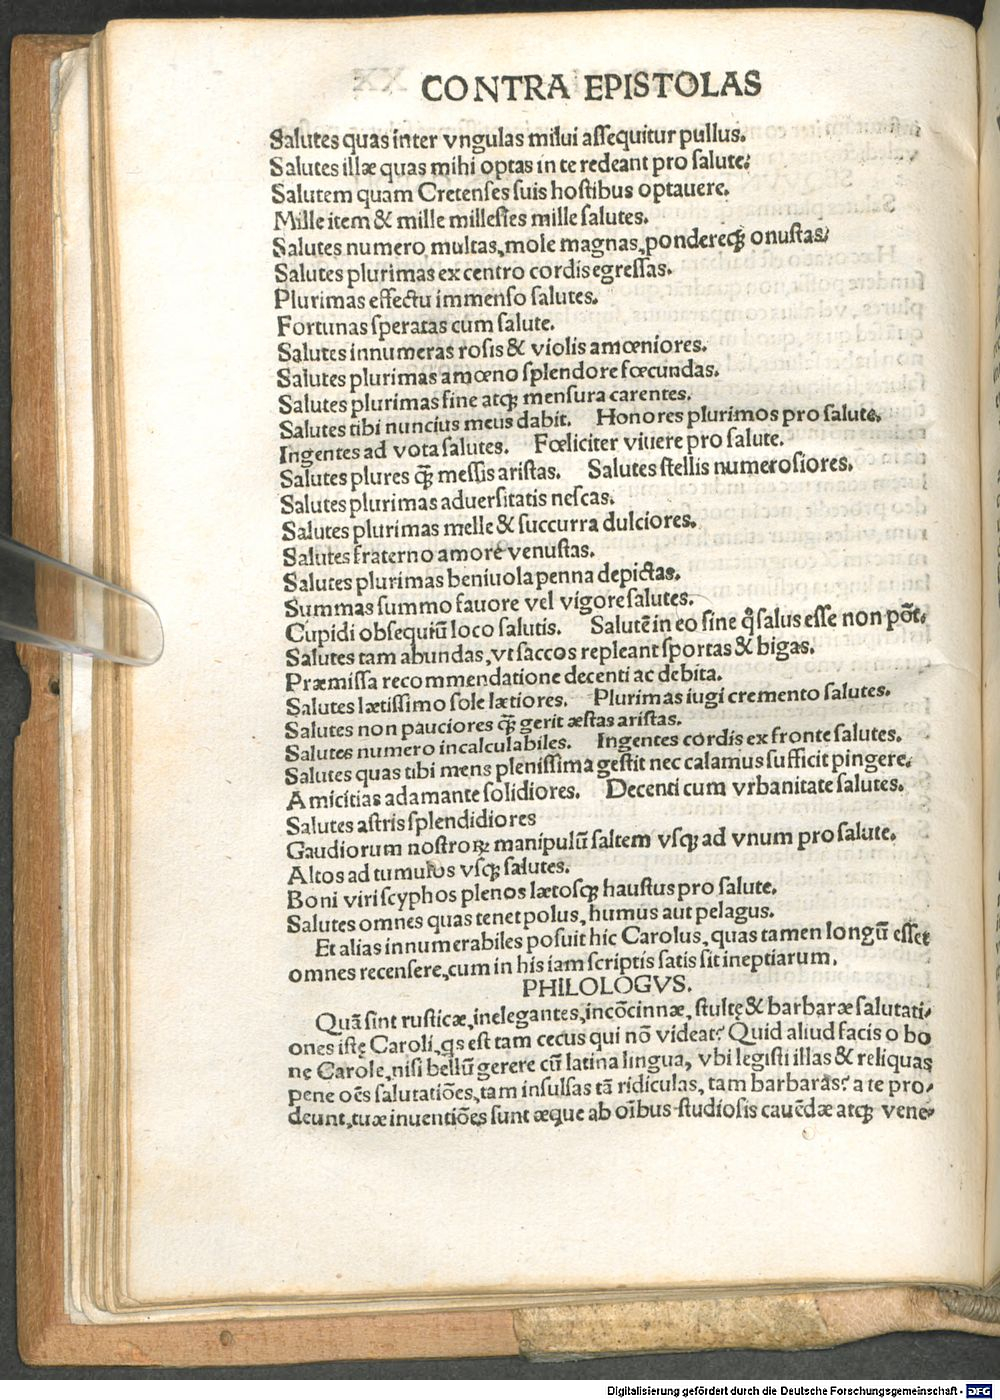 CONTRA EPISTOLAS
Salutes quas inter vngulas milui assequitur pullus.
Salutes illæ quas mihi optas in te redeant pro salute.
Salutem quam Cretenses suis hostibus optauere.
Mille item & mille millesies mille salutes.
Salutes numero multas, mole magnas, pondereq̃ onustas.
Salutes plurimas ex centro cordis egressas.
Plurimas effectu immenso salutes.
Fortunas speratas cum salute.
Salutes innumeras rosis & violis amœniores.
Salutes plurimas amœno splendore fœcundas.
Salutes plurimas fine atq; mensura carentes.
Salutes tibi nuncius meus dabit. Honores plurimos pro salute.
Ingentes ad vota salutes. Fœliciter viuere pro salute.
Salutes plures q̃ messis aristas. Salutes stellis numerosiores.
Salutes plurimas aduersitatis nescas.
Salutes plurimas melle & succurra dulciores.
Salutes fraterno amore venustas.
Salutes plurimas beniuola penna depictas.
Summas summo fauore vel vigore salutes.
Cupidi obsequiũ loco salutis. Salutẽ in eo sine q̊ salus esse non põt.
Salutes tam abundas, vt saccos repleant sportas & bigas.
Præmissa recommendatione decenti ac debita.
Salutes lætissimo sole lætiores. Plurimas iugi cremento salutes.
Salutes non pauciores q̃ gerit æstas aristas.
Salutes numero incalculabiles. Ingentes cordis ex fronte salutes.
Salutes quas tibi mens plenissima gestit nec calamus sufficit pingere.
Amicitias adamante solidiores. Decenti cum vrbanitate salutes.
Salutes astris splendidiores
Gaudiorum nostroꝝ manipulũ saltem vsq; ad vnum pro salute.
Altos ad tumulos vsq; salutes.
Boni viri scyphos plenos lætosq; haustus pro salute.
Salutes omnes quas tenet polus, humus aut pelagus.
Et alias innumerabiles posuit hic Carolus, quas tamen longũ esset
omnes recensere, cum in his iam scriptis satis sit ineptiarum.
PHILOLOGVS.
Quã sint rusticæ, inelegantes, incõcinnæ, stultę & barbaræ salutati-
ones istę Caroli, qs est tam cecus qui nõ videat? Quid aliud facis o bo
nę Carole, nisi bellũ gerere cũ latina lingua, vbi legisti illas & reliquas
pene oẽs salutatiões, tam insulsas tã ridiculas, tam barbaras? a te pro-
deunt, tuæ inuentiões sunt æque ab oĩbus studiosis cauẽdæ atq; vene-
Digitalisierung gefördert durch die Deutsche Forschungsgemeinschaft - DFG